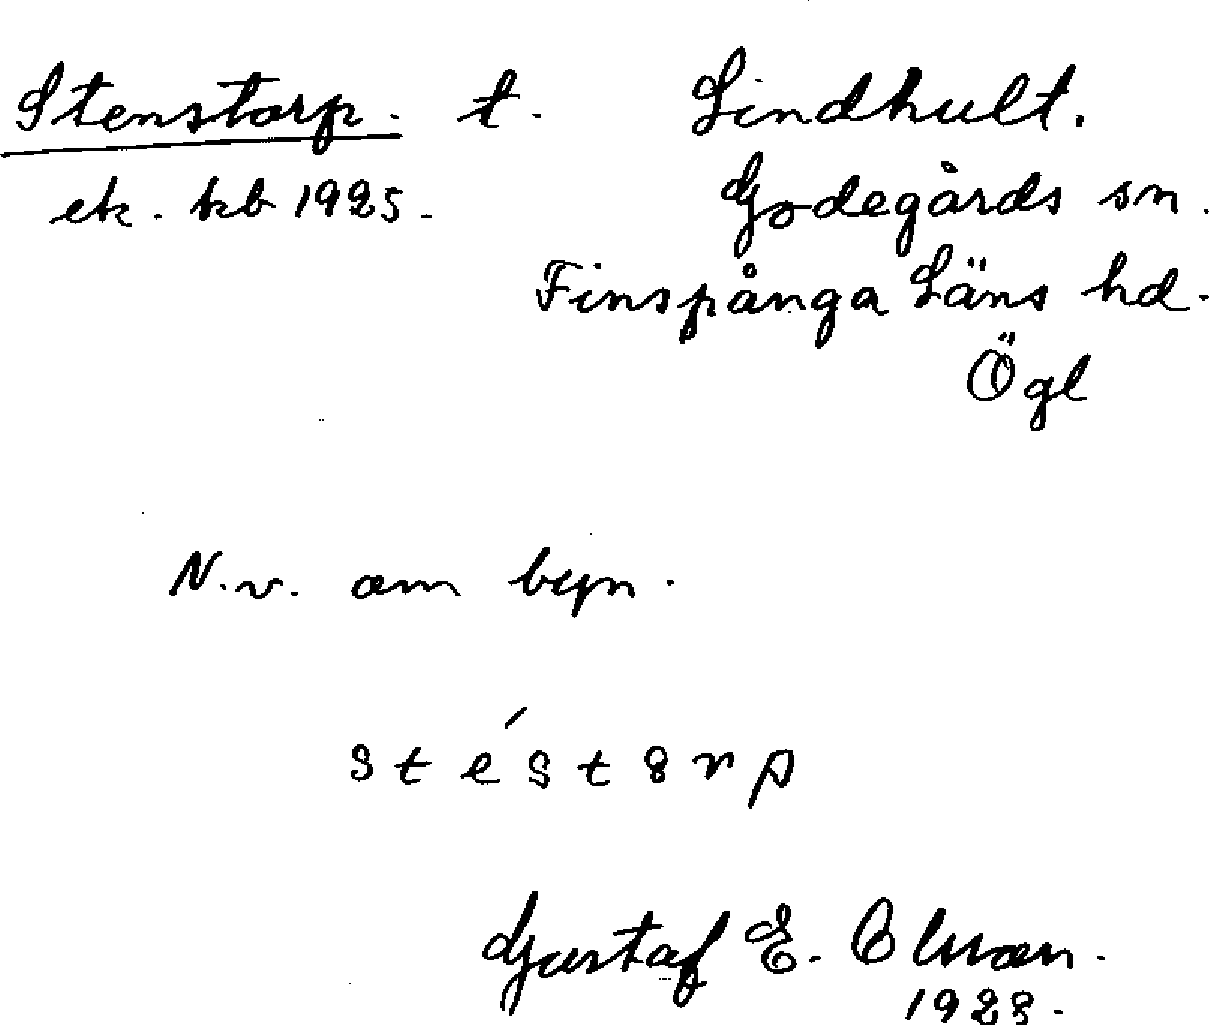 Stenstorp. t. Lindhult.
ek. kb 1925. Godegårds sn.
Finspånga Läns hd.
Ögl
N.v. om byn.
stéstȣrp
Gustaf E. Olsson.
1928.